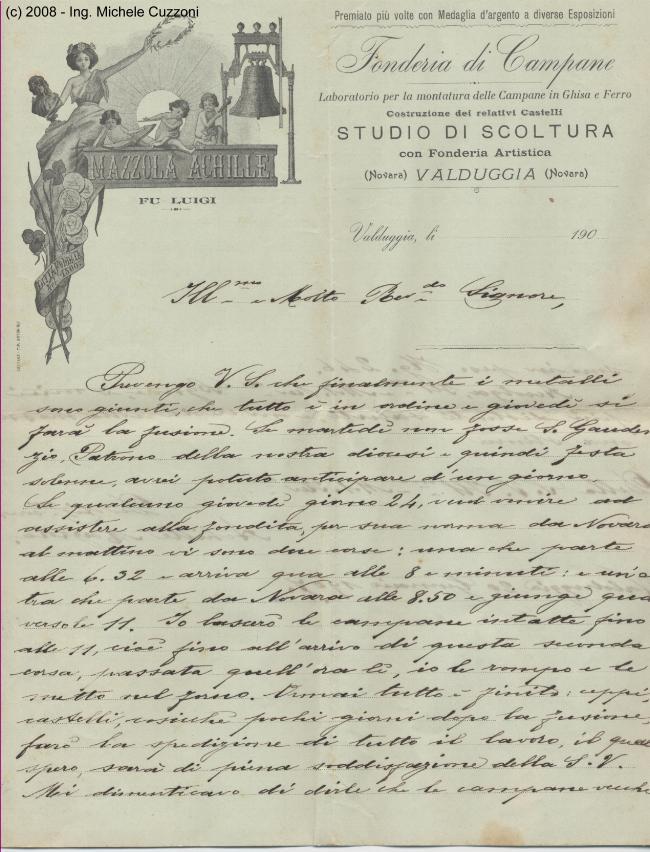 (c) 2008 - Ing. Michele Cuzzoni
Premiato più volte con Medaglia d'argento a diverse Esposizioni
Fonderia di Campane
Laboratorio per la montatura delle Campane in Ghisa e Ferro
Costruzione dei relativi Castelli
STUDIO DI SCOLTURA
con Fonderia Artistica
(Novara) VALDUGGIA (Novara)
MAZZOLA ACHILLE
FU LUIGI
Valduggia, li 190
Ill.mo e Molto Rev.do Signore,
Prevengo V. S. che finalmente i metalli
sono giunti, che tutto è in ordine e giovedì si
farà la fusione. Se martedì non fosse S. Gauden
zio, Patrono della nostra diocesi e quindi festa
solenne, avrei potuto anticipare d'un giorno.
Se qualcuno giovedì giorno 24, vuol venire ad
assistere alla fondita, per sua norma da Novara
al mattino vi sono due corse: una che parte
alle 6.32 e arriva qua alle 8 e minuti: e un'a
tra che parte da Novara alle 8.50 e giunge qua
verso le 11. Io lascerò le campane intatte fino
alle 11, cioè fino all'arrivo di questa seconda
corsa, passata quell'ora lì, io le rompo e le
metto nel forno. Ormai tutto è finito: ceppi,
castelli, cosicché pochi giorni dopo la fusione,
farò la spedizione di tutto il lavoro, il quale
spero, sarà di piena soddisfazione della S. V.
Mi dimenticavo di dirle che le campane vecchie